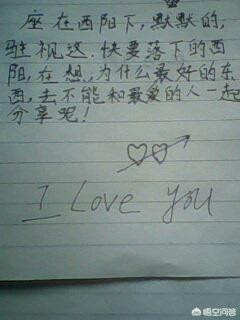 座在西阳下,默默的,
驻视这.快要落下的西
阳,在想,为什么最好的东
西,去不能和最爱的人一起
分享呢!
I Love you
悟空问答